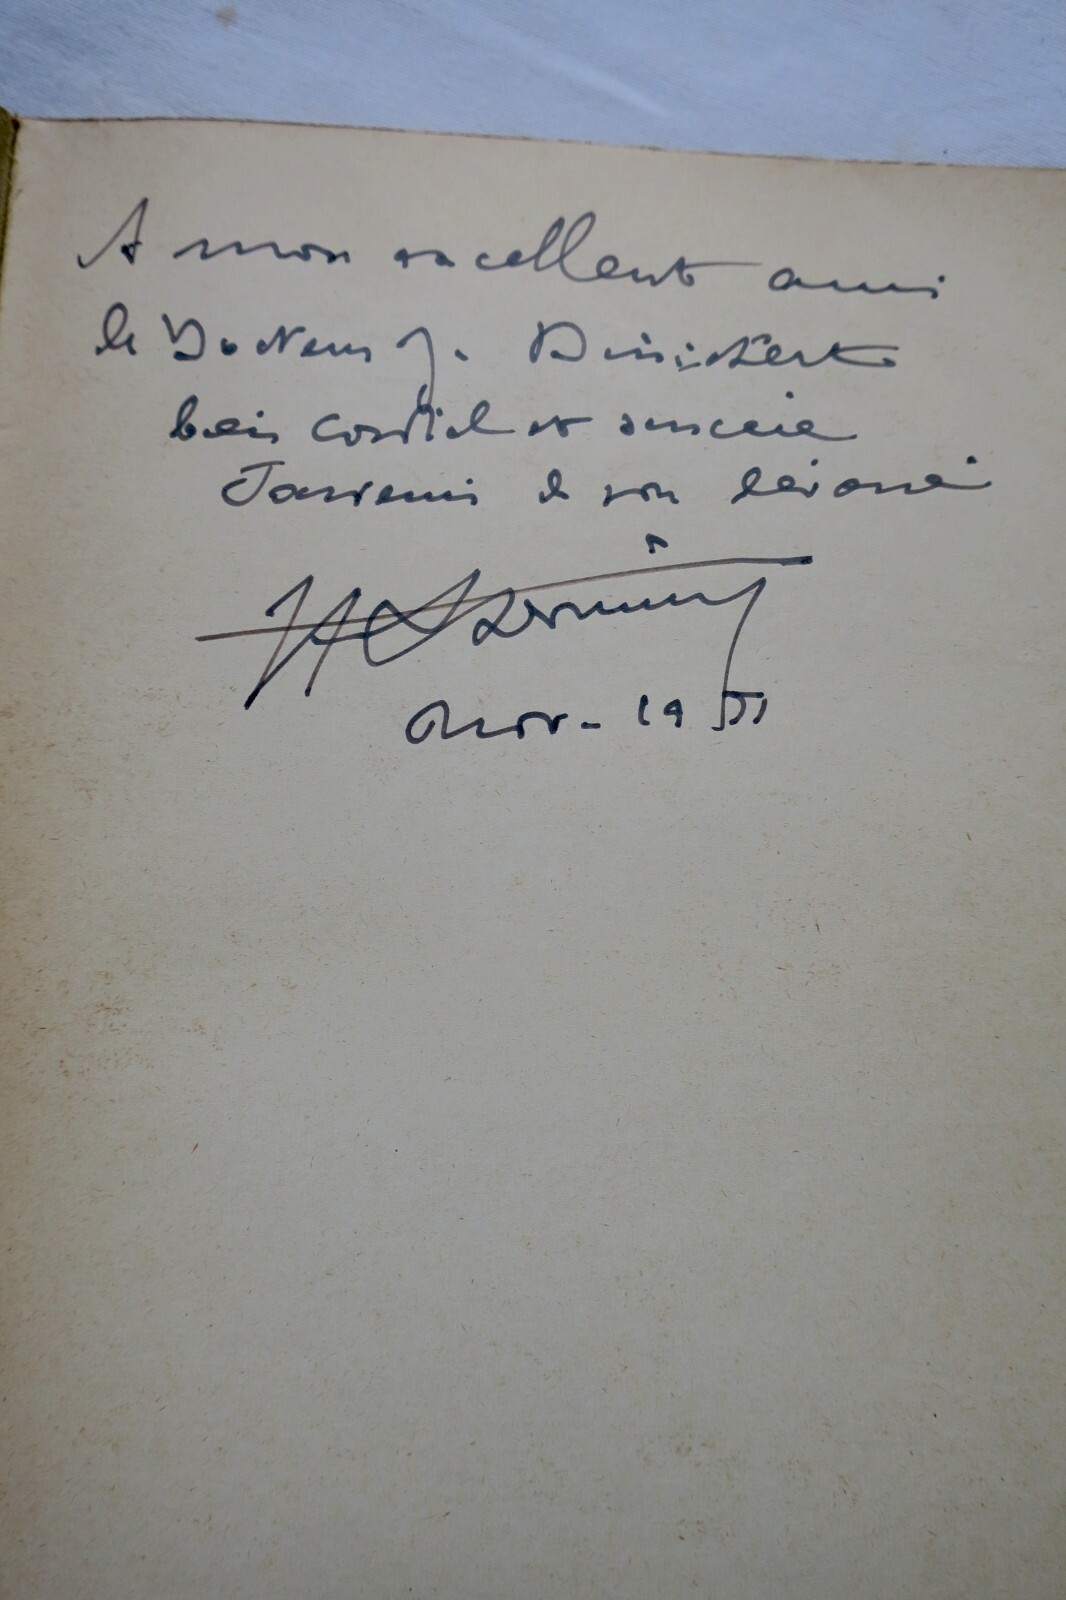 A mon excellent ami
le Docteur J.
bien cordial et sincère
souvenir de son dévoué
Nov - 1951